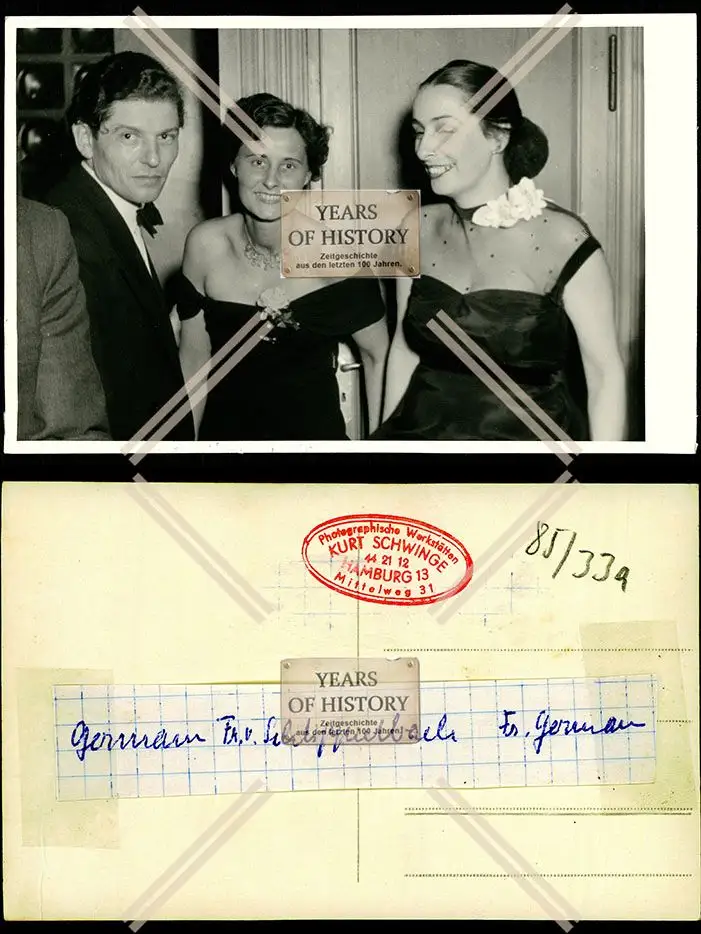 YEARS
OF HISTORY
Zeitgeschichte
aus den letzten 100 Jahren.
Photographische Werkstätten
KURT SCHWINGE
44 21 12
HAMBURG 13
Mittelweg 31
85/33a
YEARS
OF HISTORY
Zeitgeschichte
aus den letzten 100 Jahren.
Germann Fr. v. Fr. German